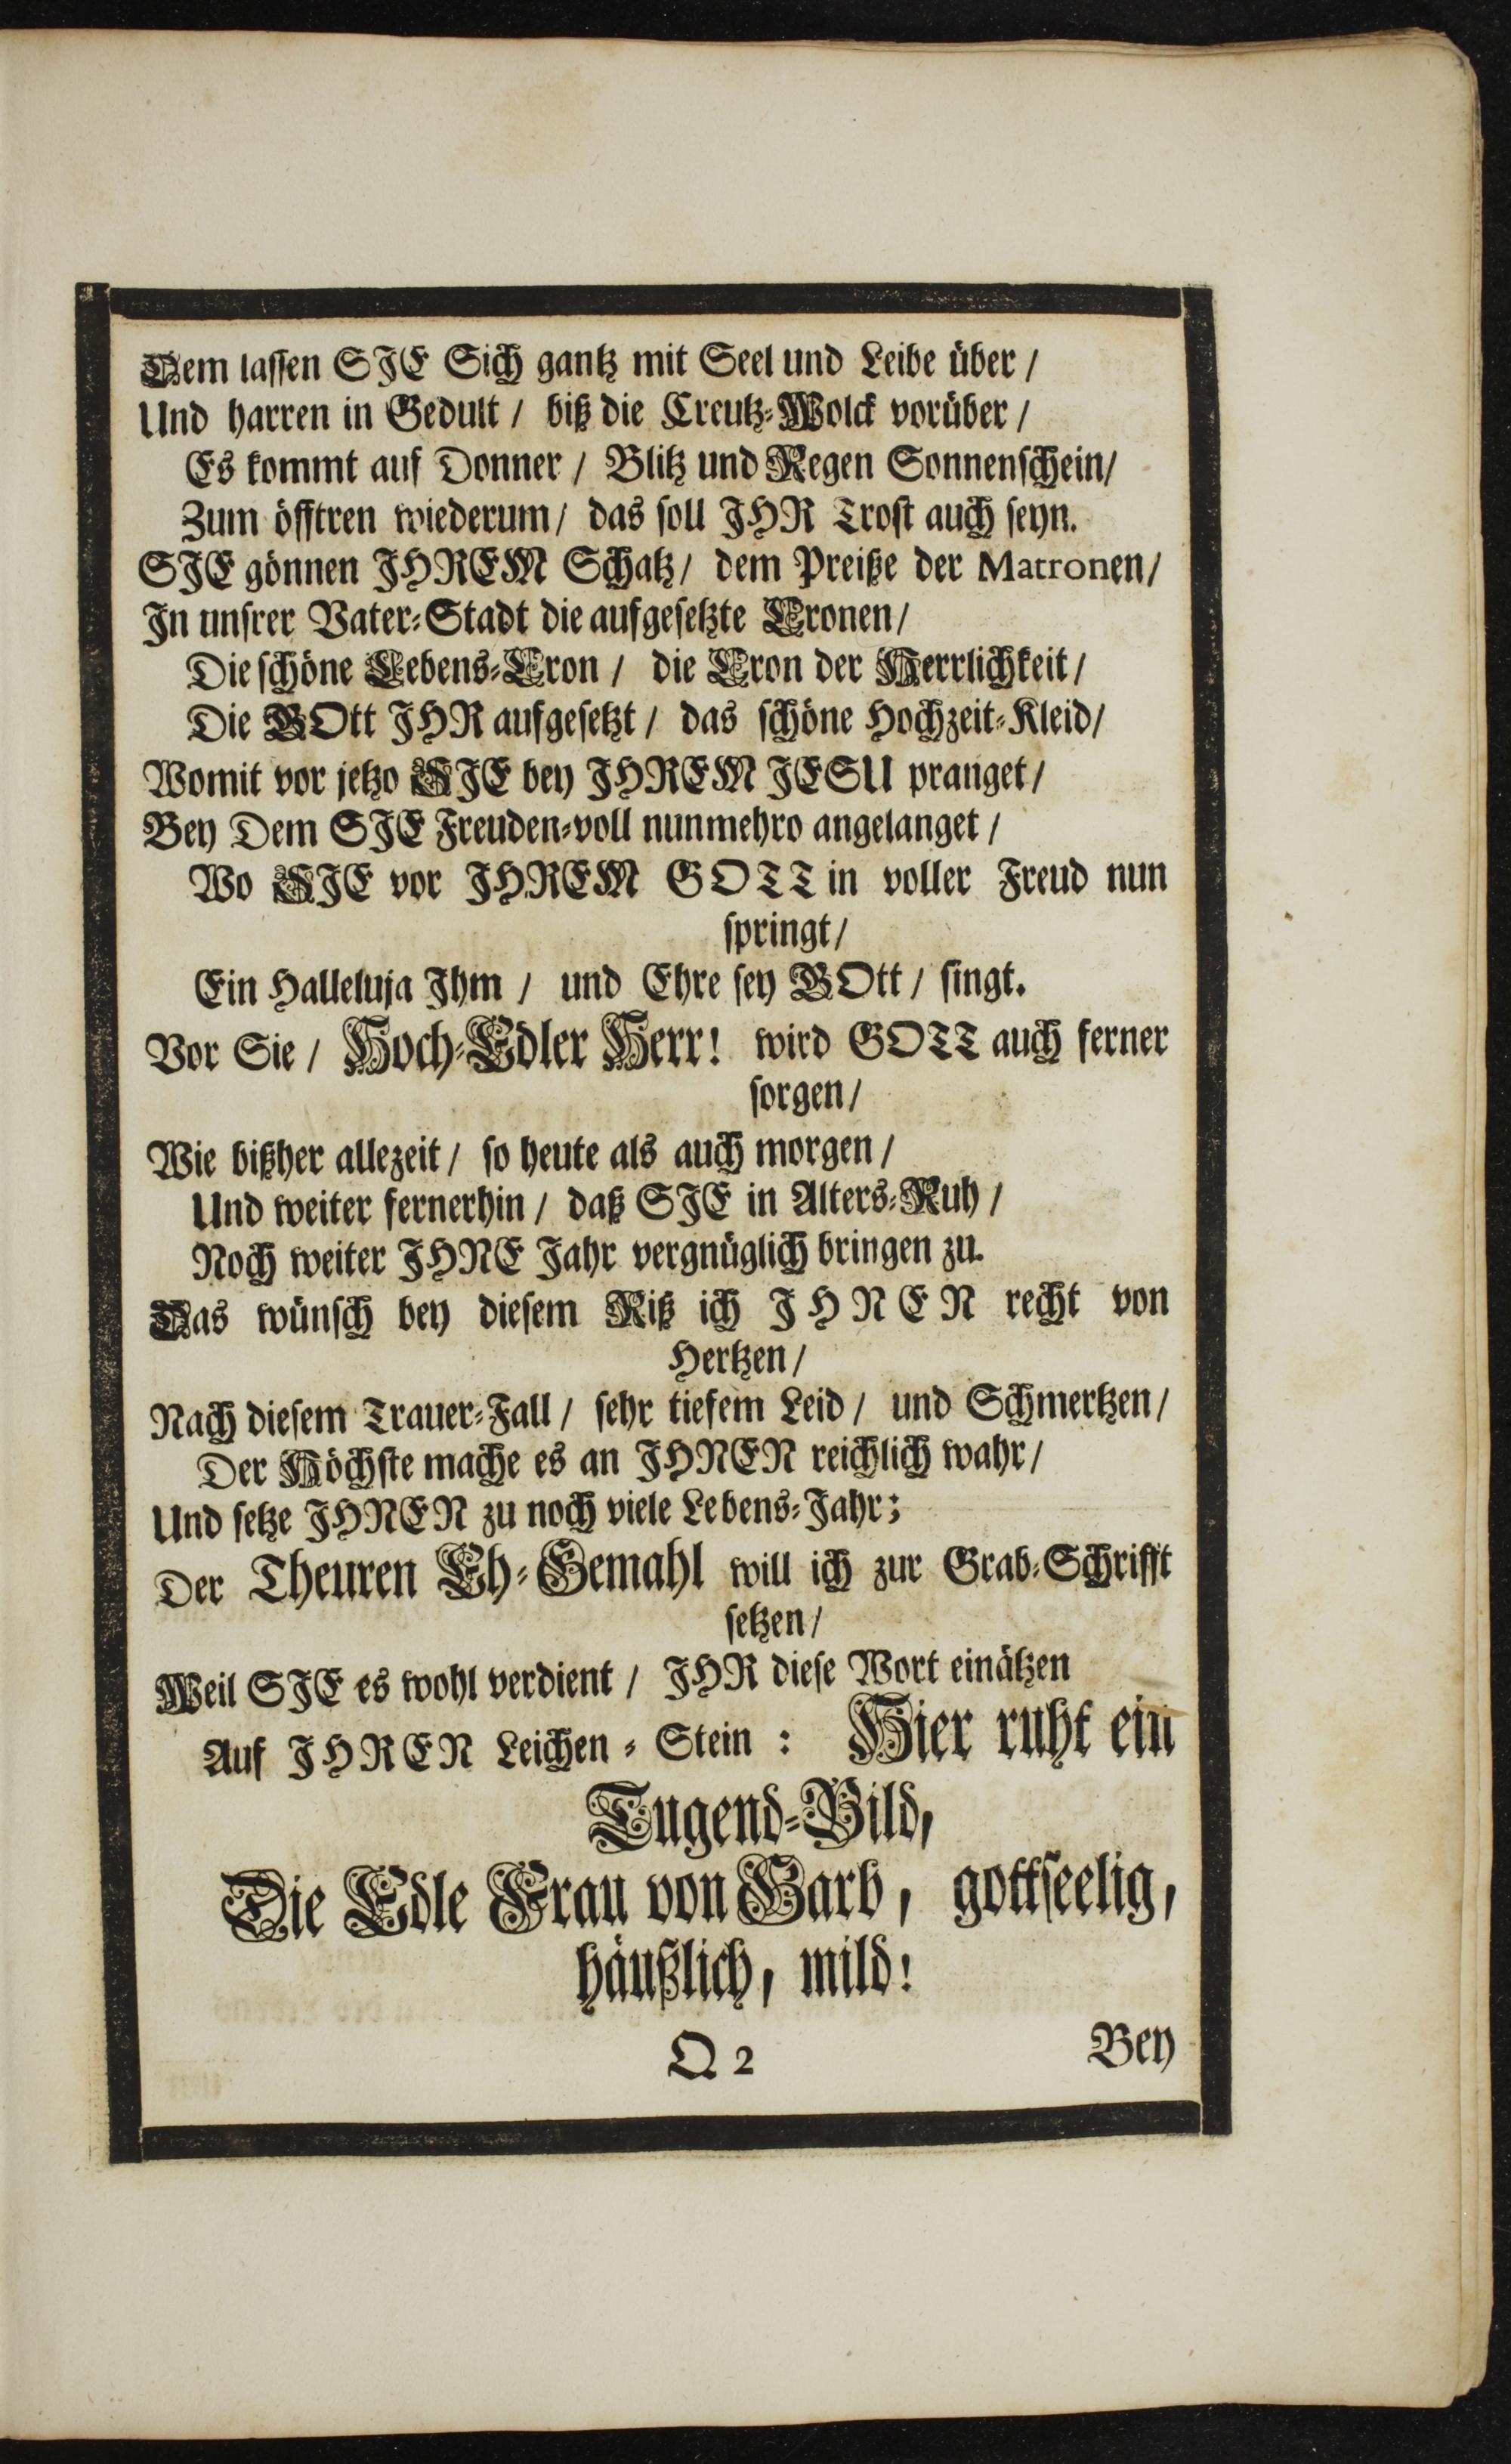 Dem lassen SIE Sich gantz mit Seel und Leibe über /
Und harren in Gedult / biß die Creutz-Wolck vorüber /
Es kommt auf Donner / Blitz und Regen Sonnenschein/
Zum öfftren wiederum/ das soll IHR Trost auch seyn.
SIE gönnen IHREM Schatz/ dem Preiße der Matronen/
In unsrer Vater-Stadt die aufgesetzte Cronen/
Die schöne Lebens-Cron / die Cron der Herrlichkeit/
Die GOtt IHR aufgesetzt / das schöne Hochzeit-Kleid/
Womit vor jetzo SIE bey IHREM JESU pranget/
Bey Dem SIE Freuden-voll nunmehro angelanget /
Wo SIE vor IHREM GOTT in voller Freud nun
springt/
Ein Halleluja Ihm / und Ehre sey GOtt / singt.
Vor Sie / Hoch-Edler Herr! wird GOTT auch ferner
sorgen/
Wie bißher allezeit / so heute als auch morgen /
Und weiter fernerhin / daß SIE in Alters-Ruh /
Noch weiter IHNE Jahr vergnüglich bringen zu.
Das wünsch bey diesem Riß ich IHNEN recht von
Hertzen/
Nach diesem Trauer-Fall / sehr tiefem Leid / und Schmertzen/
Der Höchste mache es an IHNEN reichlich wahr/
Und setze IHNEN zu noch viele Lebens-Jahr;
Der Theuren Eh-Gemahl will ich zur Grab-Schrifft
setzen/
Weil SIE es wohl verdient / IHR diese Wort einätzen
Auf IHREN Leichen-Stein: Hier ruht ein
Tugend-Bild,
Die Edle Frau von Garb, gottseelig,
häußlich, mild!
Q 2
Bey